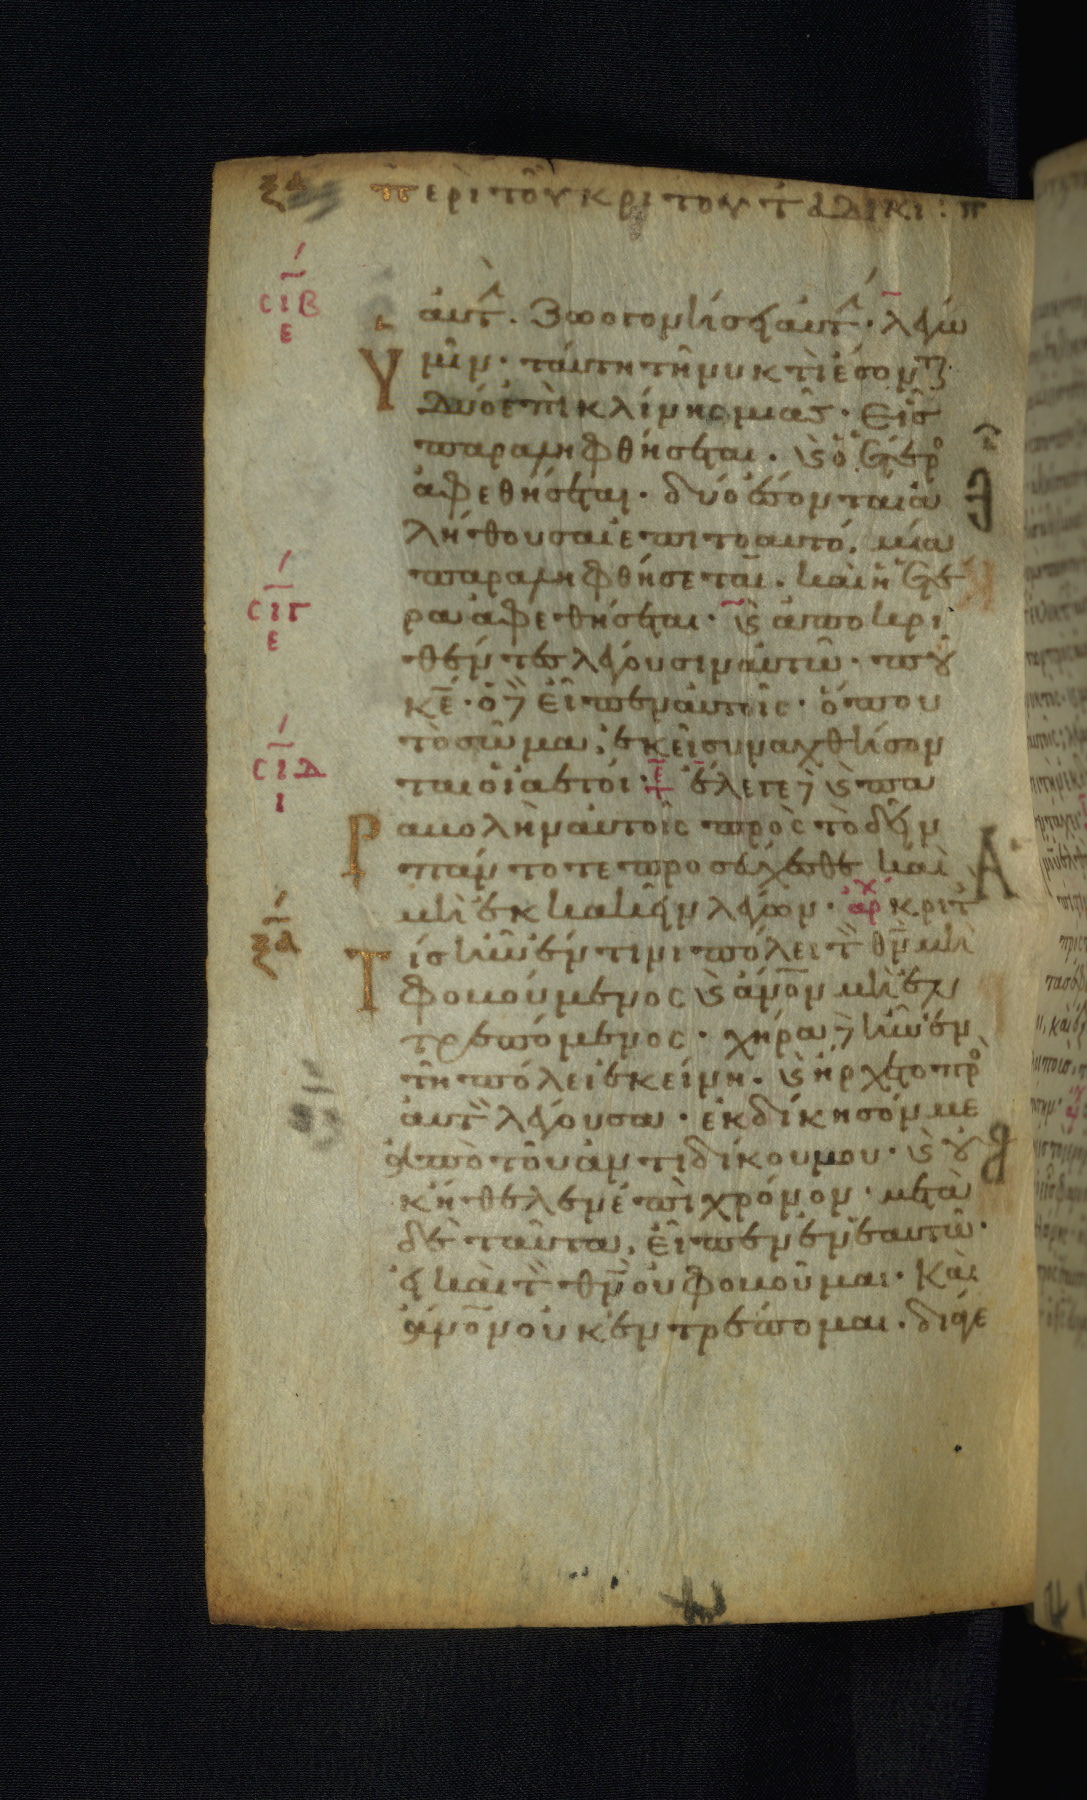 ξα περὶ τοῦ κριτοῦ τ ἀδικί : π
ϲιβ
ε
αὐτ. Ζωογονήσει αὐτ. λέγω
Ὑμῖν. ταύτη τῆ νυκτὶ ἔσοντ
Δύο ἐπὶ κλίνης μιᾶς. Εἷς
παραληφθήσεται. ϗ ὁ ἕτερο
ἀφεθήσεται. δύο ἔσονται ἀ
λήθουσαι ἐπιτοαυτό. μία
παραληφθήσεται. καὶ ἡ ἑτέ
ϲιγ
ε
ρα ἀφεθήσεται. ϗ ἀποκρι
θέντες λέγουσιν αὐτῶ. ποῦ
κε. ὁ δὲ εἶπεν αὐτοῖς. ὅπου
τὸ σῶμα, ἐκεῖ συναχθήσον
ϲιδ
ι
ται οἱ ἀετοί. ἔλεγε δὲ ϗ πα
Ραβολὴν αὐτοῖς πρὸς τὸ δεῖν
πάντοτε προσεύχεσθε καὶ
μὴ ἐκκακεῖν λέγων. ἀρχ κριτ
ξα
Τίς ἦν ἔν τινι πόλει τ θν μὴ
φοβούμενος ϗ ἄνον μὴ ἐν
τρεπόμενος. χήρα δὲ ἦν ἐν
τῆ πόλει ἐκείνη. ϗ ἤρχετο προ
αὐτ λέγουσα. ἐκδίκησόν με
ἀπὸ τοῦ ἀντιδίκου μου. ϗ οὐ
κ ἤθελεν ἐπὶ χρόνον. μετὰ
δὲ ταῦτα, εἶπεν ἐν ἑαυτῶ.
εἰ καὶ τ θν οὐ φοβοῦμαι. Καὶ
ἄνον οὐκ ἐντρέπομαι. διάγε